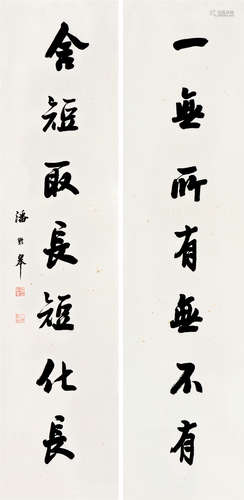 一無所有無不有
舍短取長短化長
潘齡皋